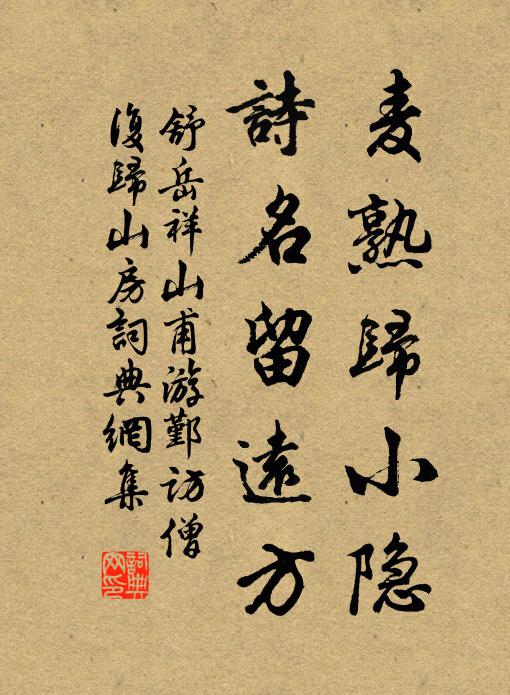 麦熟歸小隐
詩名留遠方
舒岳祥山甫游鄞访僧
復歸山房詞典網集
詞典
网印